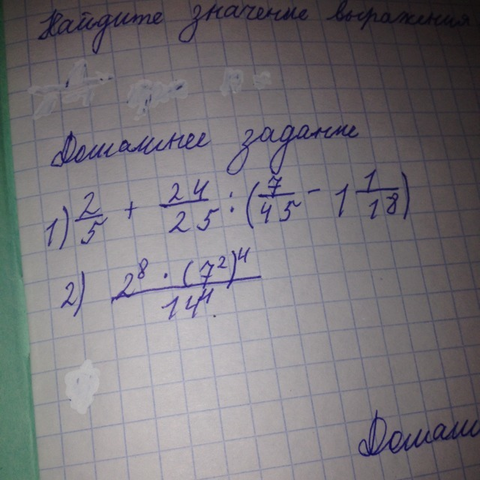 Найдите значение выражения
Домашнее задание
1) 2/5 + 24/25 : (7/45 - 1 1/18)
2) 2⁸ · (7²)⁴ / 14⁴
Домаш